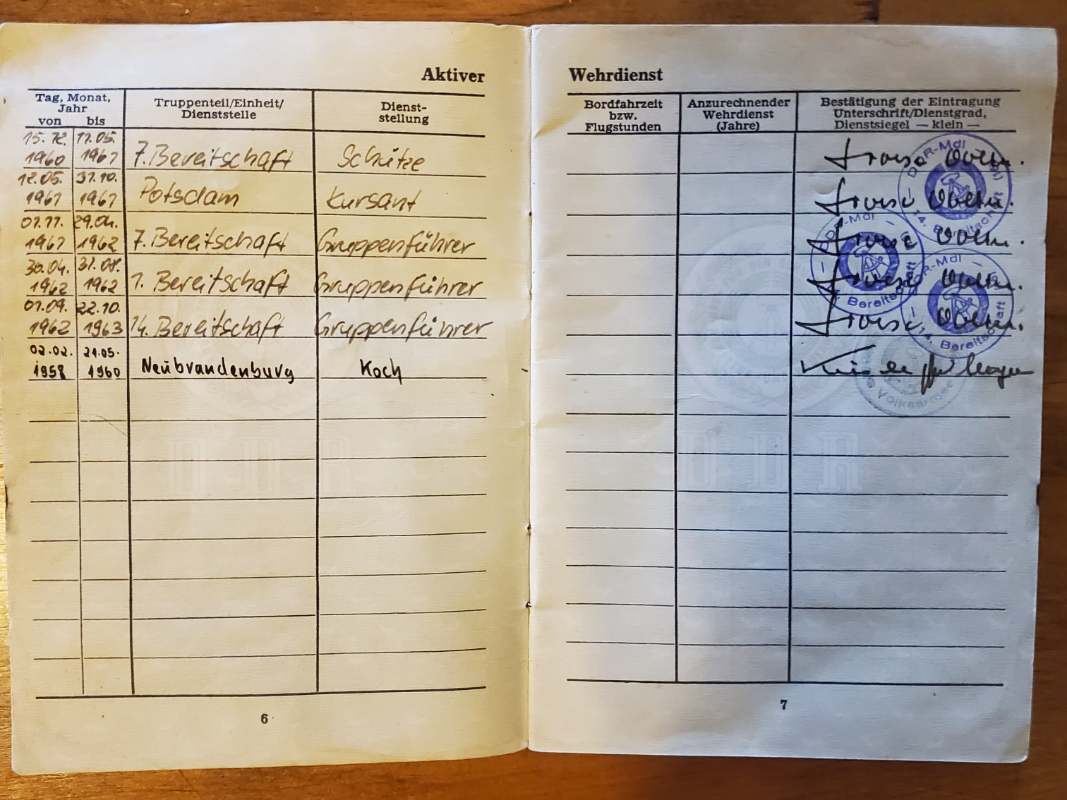 Aktiver
Tag, Monat, Jahr
von bis
Truppenteil/Einheit/
Dienststelle
Dienst-
stellung
15.12. 11.05.
1960 1961 7. Bereitschaft Schütze
12.05. 31.10.
1961 1961 Potsdam Kursant
01.11. 29.04.
1961 1962 7. Bereitschaft Gruppenführer
30.04. 31.08.
1962 1962 1. Bereitschaft Gruppenführer
01.09. 22.10.
1962 1963 14. Bereitschaft Gruppenführer
02.02. 21.05.
1958 1960 Neubrandenburg Koch
DDR
6
Wehrdienst
Bordfahrzeit
bzw.
Flugstunden
Anzurechnender
Wehrdienst
(Jahre)
Bestätigung der Eintragung
Unterschrift/Dienstgrad,
Dienstsiegel — klein —
DDR-MdI
14. Bereitschaft
DDR-MdI
Bereitschaft
DR-MdI
14. Bereitschaft
Volksarmee
DDR
7